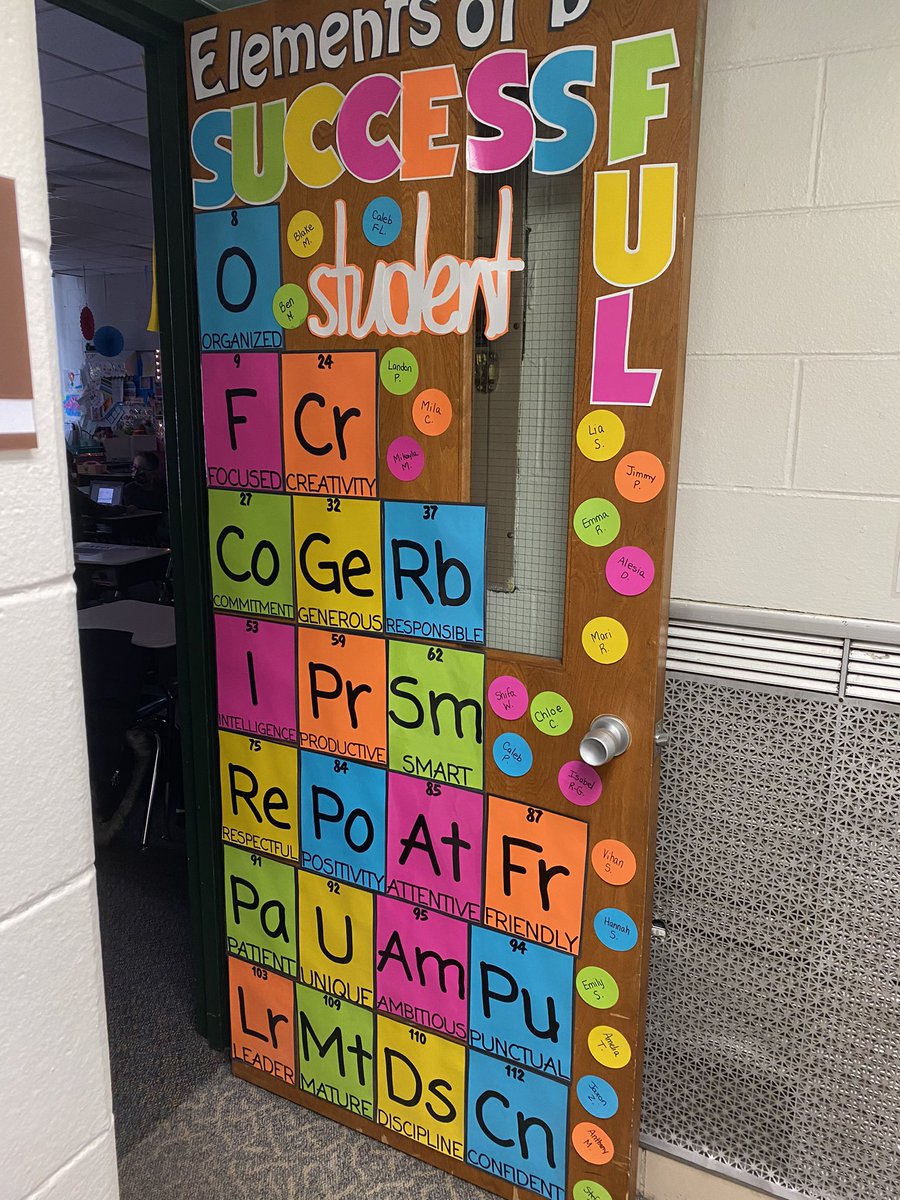 Elements of
SUCCESSFUL
student
8
O
ORGANIZED
Blake
M.
Caleb
FL.
Ben
9
F
FOCUSED
24
Cr
CREATIVITY
Landon
P.
Mila
C.
Mikayla
M.
Lia
S.
Jimmy
P.
Emma
R.
Alesia
D.
Mari
R.
27
Co
COMMITMENT
32
Ge
GENEROUS
37
Rb
RESPONSIBLE
53
I
INTELLIGENCE
59
Pr
PRODUCTIVE
62
Sm
SMART
Shifa
W.
Chloe
C.
Caleb
P.
Isabel
R-G.
75
Re
RESPECTFUL
84
Po
POSITIVITY
85
At
ATTENTIVE
87
Fr
FRIENDLY
Vihan
S.
Hannah
S.
Emily
S.
Amelia
T.
Jaxon
Z.
Anthony
M.
91
Pa
PATIENT
92
U
UNIQUE
95
Am
AMBITIOUS
94
Pu
PUNCTUAL
103
Lr
LEADER
109
Mt
MATURE
110
Ds
DISCIPLINE
112
Cn
CONFIDENT